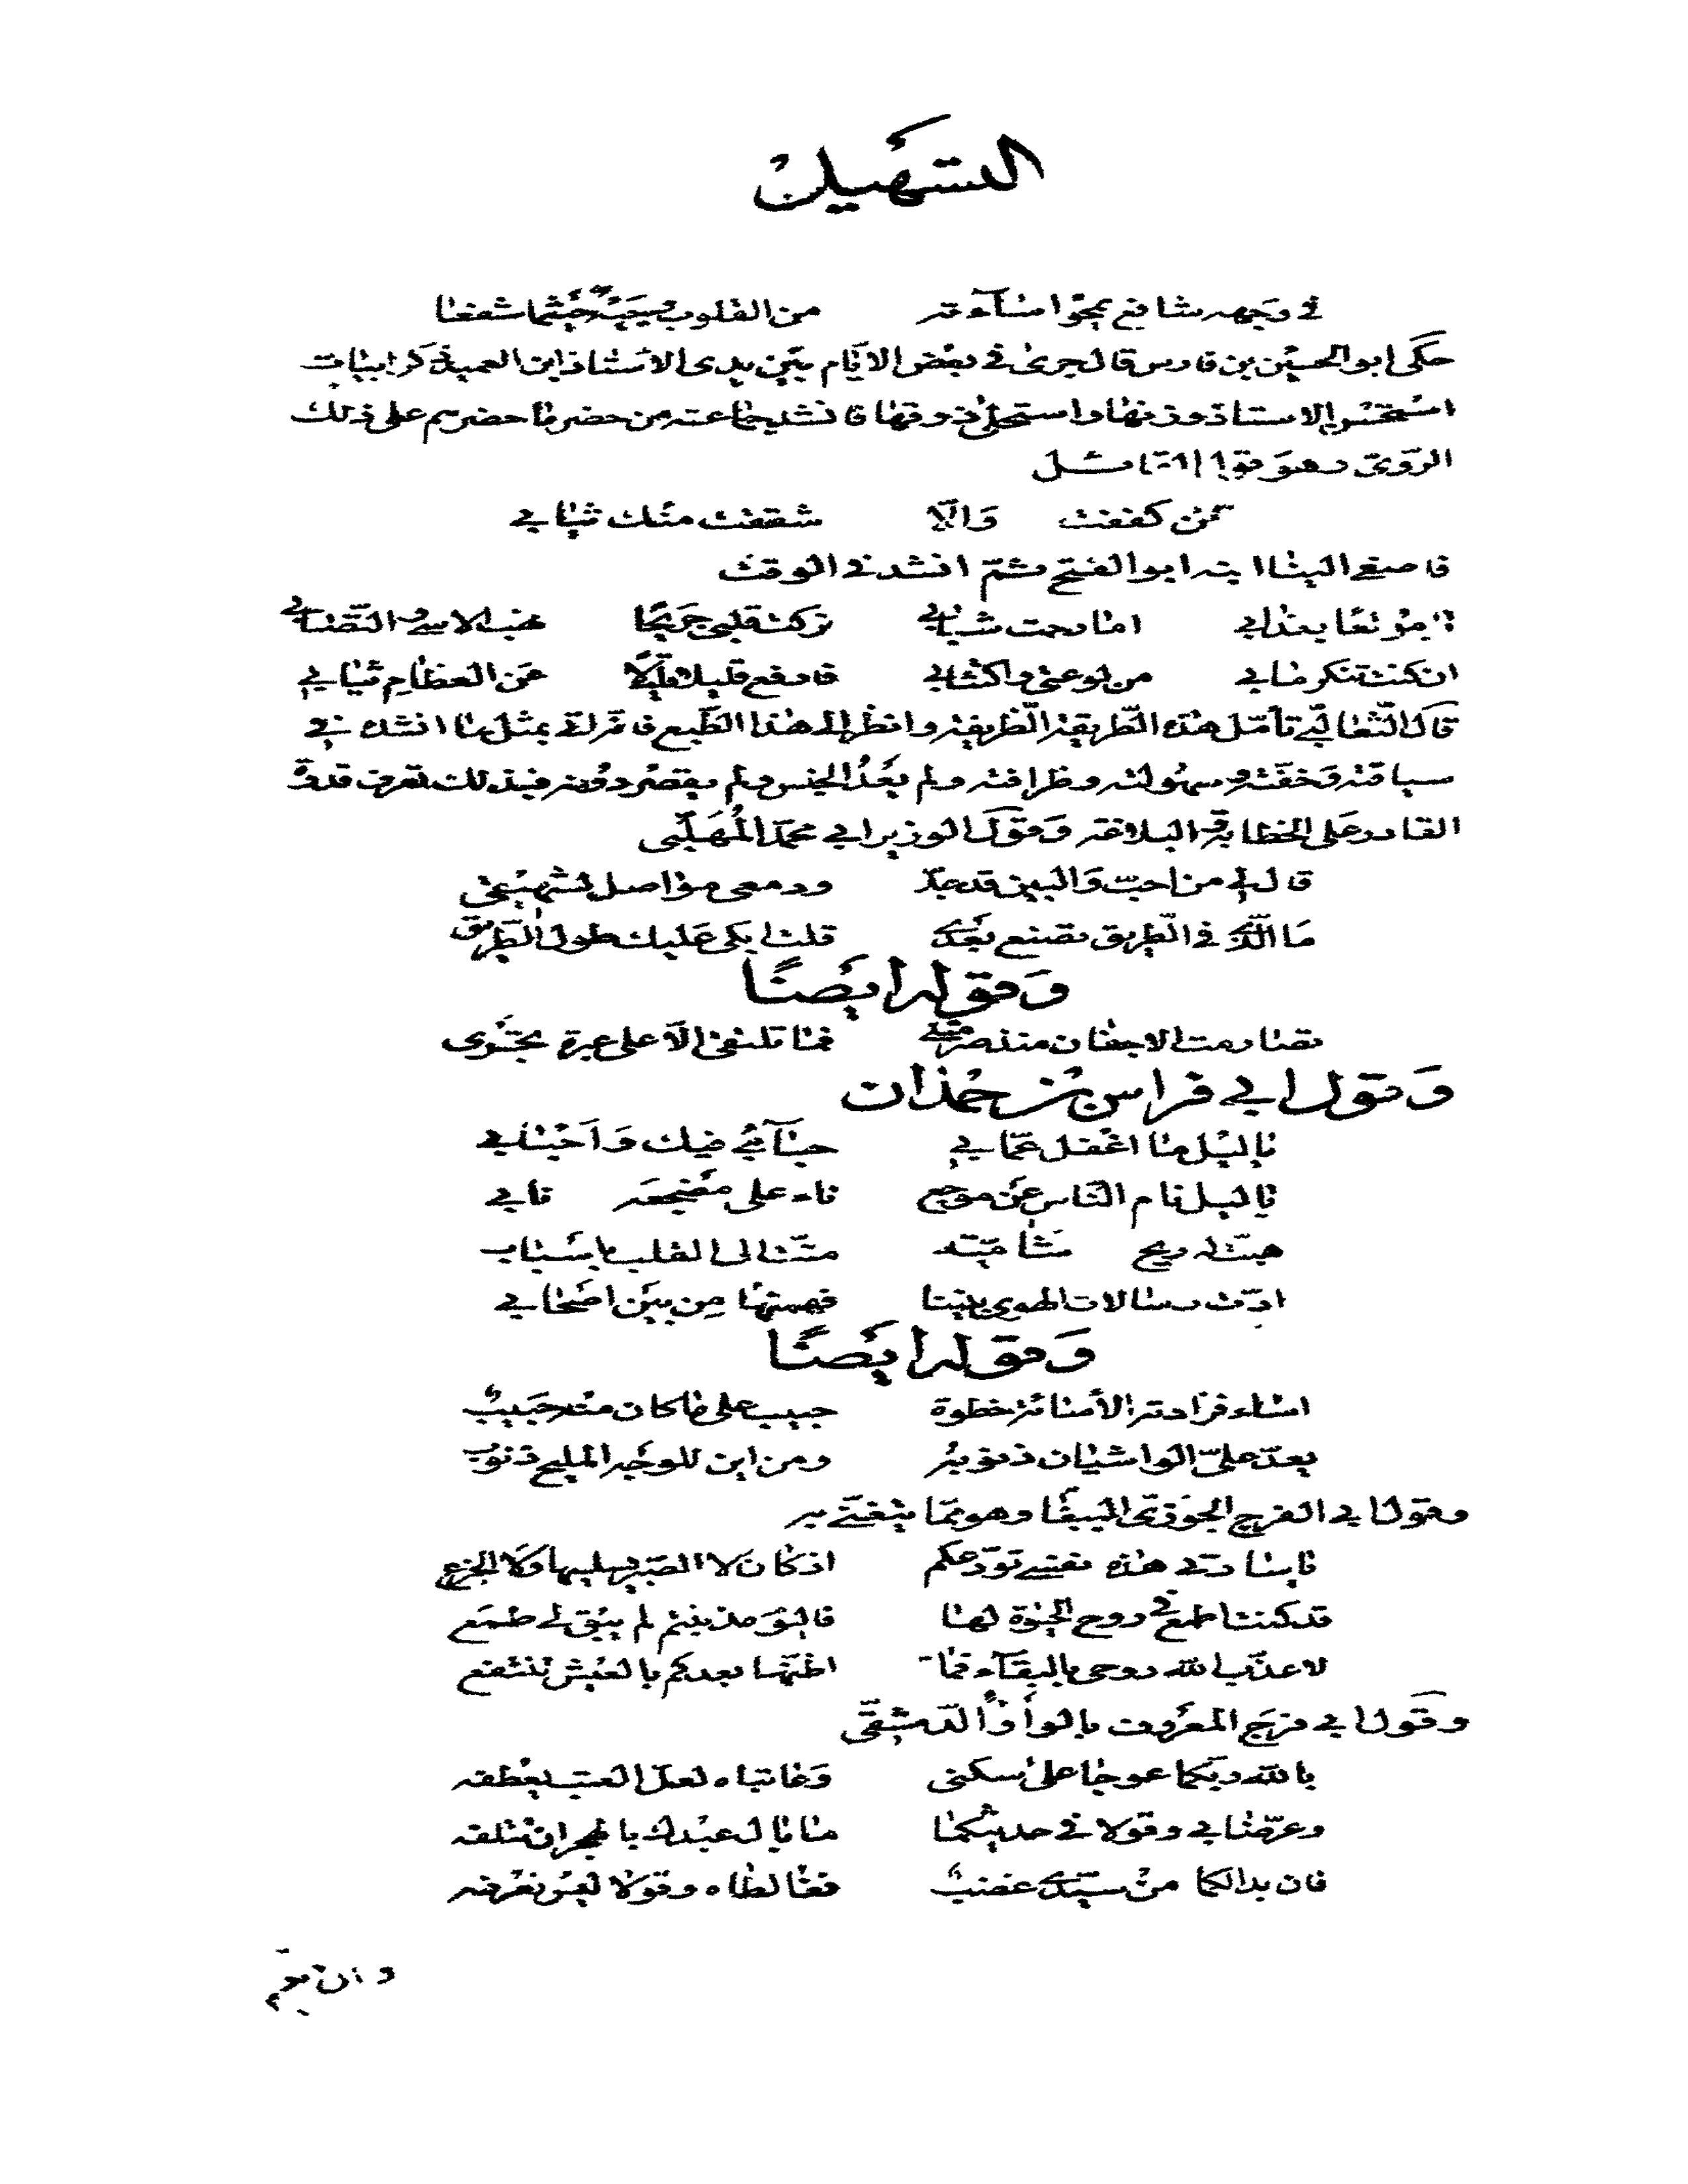 التسهيل
في وجهه شافع يمحو اساءته من القلوب وجيه حيثما شفعا
حكى ابو الحسين بن فارس قال جرى في بعض الايام بين يدى الاستاذ ابن العميد ذكر ابيات
استحسن الاستاذ وزنها واستحلى ذوقها فانشد جماعته من حضر ما حضرهم على ذلك
الروى وهو قول القائل
لئن كففت والّا شققت منك ثيابي
فاصغى الينا ابنه ابو الفتح ثم انشد في الوقت
يا مولعا بعذابي اما رحمت شبابي تركت قلبي جريحا نهب الاسى والتصابي
ان كنت تنكر ما بي من لوعتي واكتئابي فارفع قليلا قليلا عن العظام ثيابي
قال الثعالبي تأمل هذه الطريقة الظريفة وانظر الى هذا الطبع فانه اتى بمثل ما انشده في
سياقته وخفته وسهولته وظرافته ولم يعد الجنس ولم يقصر دونه فبذلك تعرف قدرة
القادر على الخطابة والبلاغة وقول الوزير ابي محمد المهلبى
قال لي من احب والبين قد جد ودمعى مواصل لشهيقى
ما الذي في الطريق تصنع بعدي قلت ابكى عليك طول الطريق
وقوله ايضا
تصارمت الاجفان منذ صرمتني فما تلتقى الّا على عبرة تجرى
وقول ابي فراس بن حمدان
يا ليل ما اغفل عما بي حبائبي فيك واحبابي
يا ليل نام الناس عن موجع ناء على مضجعه نابي
هبت له ريح شامية متت الى القلب باسباب
ادت رسالات الهوى بيننا فهمتها من بين اصحابي
وقوله ايضا
اساء فزادته الأساءة خطوة حبيب على ما كان منه حبيب
يعد على الواشيان ذنوبه ومن اين للوجه المليح ذنوب
وقول ابي الفرج الببغا وهو مما يتغنى به
يا سادتي هذه نفسي تودعكم اذ كان لا الصبر يسليها ولا الجزع
قد كنت اطمع في روح الحيوة لها فاليوم مذ بنتم لم يبق لي طمع
لا عذب الله روحى بالبقاء فما اظنها بعدكم بالعيش تنتفع
وقول ابي فرج المعروف بالوأواء الدمشقى
بالله ربكما عوجا على سكنى وعاتباه لعل العتب يعطفه
وعرضا بي وقولا في حديثكما ما بال عبدك بالهجران تتلفه
فان بدا لكما من سيدي غضب فغالطاه وقولا ليس نعرفه